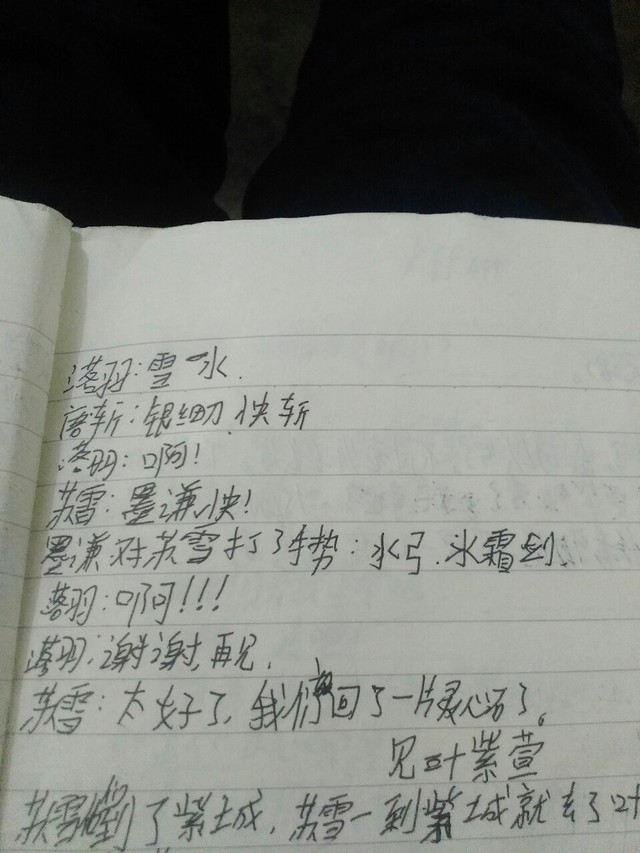 落羽：雪一水.
唐斩：银细刀.快斩
落羽：啊！
苏雪：墨谦快！
墨谦对苏雪打了手势：水弓.冰霜剑.
落羽：啊！！！
落羽：谢谢,再见.
苏雪：太好了,我们回了一片灵心石了。
见叶紫萱
苏雪到了紫城,苏雪一到紫城就去了叶